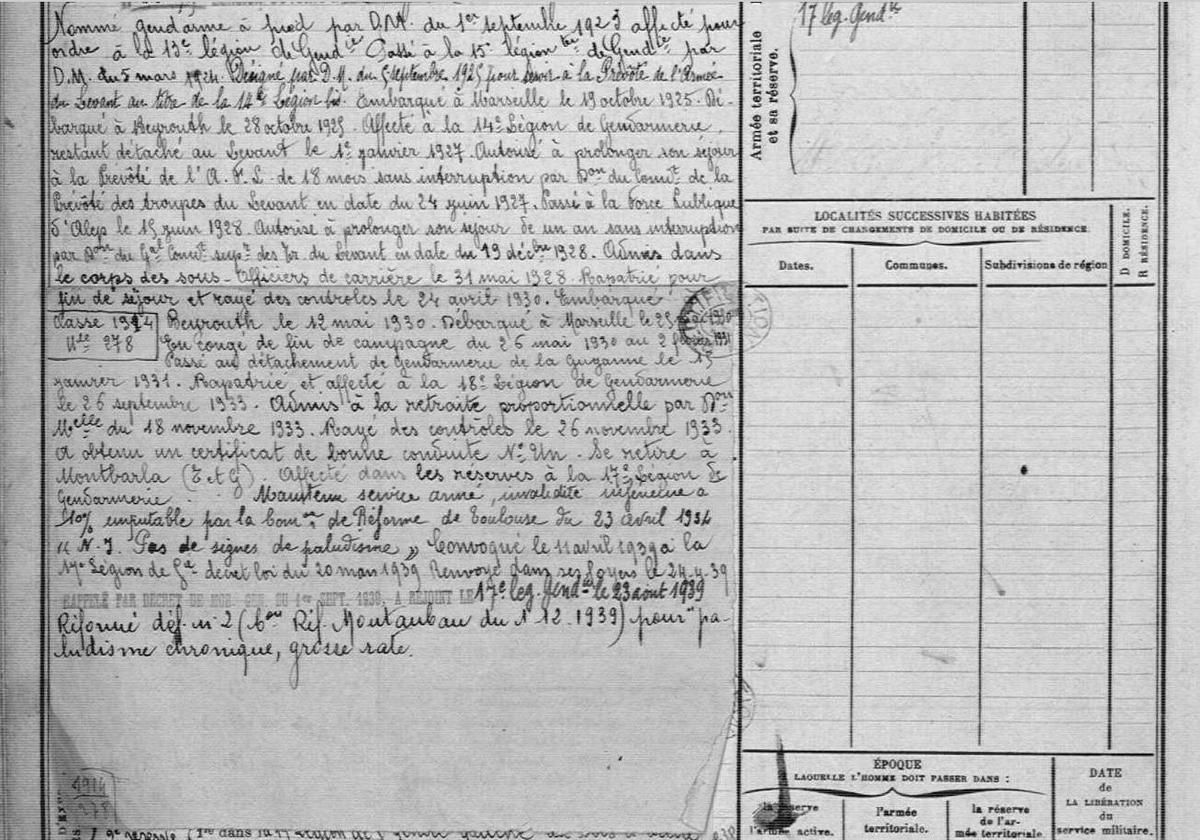 Nommé gendarme à pied par D.M. du 1er septembre 1923 affecté pour
ordre à la 13e légion de Gendie Passé à la 15e légion ter de Gendie par
D.M. du 5 mars 1924. Désigné par D.M. du 5 septembre 1925 pour servir à la Prévôté de l'Armée
du Levant au titre de la 14e Légion bis. Embarqué à Marseille le 19 octobre 1925. Dé-
barqué à Beyrouth le 28 octobre 1925. Affecté à la 14e Légion de Gendarmerie,
restant détaché au Levant le 1er janvier 1927. Autorisé à prolonger son séjour
à la Prévôté de l'A.F.L. de 18 mois sans interruption par Don du Commt de la
Prévôté des troupes du Levant en date du 24 juin 1927. Passé à la Force Publique
d'Alep le 15 juin 1928. Autorisé à prolonger son séjour de un an sans interruption
par Don du Gal Commt supr des Tr. du Levant en date du 19 décbre 1928. Admis dans
le corps des sous-Officiers de carrière le 31 mai 1928. Rapatrié pour
fin de séjour et rayé des controles le 24 avril 1930. Embarqué
Classe 1914 Beyrouth le 12 mai 1930. Débarqué à Marseille le 25 mai 1930
Mle 278 En congé de fin de campagne du 26 mai 1930 au 2 février 1931
Passé au détachement de Gendarmerie de la Guyanne le 15
janvier 1931. Rapatrié et affecté à la 18e Légion de Gendarmerie
le 26 septembre 1933. Admis à la retraite proportionnelle par Don
Melle du 18 novembre 1933. Rayé des controles le 26 novembre 1933.
A obtenu un certificat de bonne conduite No Un. Se retire à
Montbarla (T et G). Affecté dans les réserves à la 17e Légion de
Gendarmerie. Maintenu service armé, invalidité inférieure à
10% imputable par la Comon de Réforme de Toulouse du 23 avril 1934
"N.I. Pas de signes de paludisme" Convoqué le 11 avril 1939 à la
17e Légion de Gie décret loi du 20 mars 1939 Renvoyé dans ses foyers le 24-4-39
RAPPELÉ PAR DECRET DE MOB. GEN. DU 1er SEPT. 1939, A REJOINT LE 17e leg. Gendie le 23 aout 1939
Réformé déf. n° 2 (Con Réf. Montauban du 1 12.1939) pour "pa-
ludisme chronique, grosse rate.
1914
278
17 leg. Gendie
Armée territoriale
et sa réserve.
LOCALITÉS SUCCESSIVES HABITÉES
PAR SUITE DE CHANGEMENTS DE DOMICILE OU DE RÉSIDENCE.
D DOMICILE.
R RÉSIDENCE.
Dates. Communes. Subdivisions de région
ÉPOQUE
LAQUELLE L'HOMME DOIT PASSER DANS :
la réserve
l'armée active.
l'armée
territoriale.
la réserve
de l'ar-
mée territoriale.
DATE
de
LA LIBÉRATION
du
service militaire.